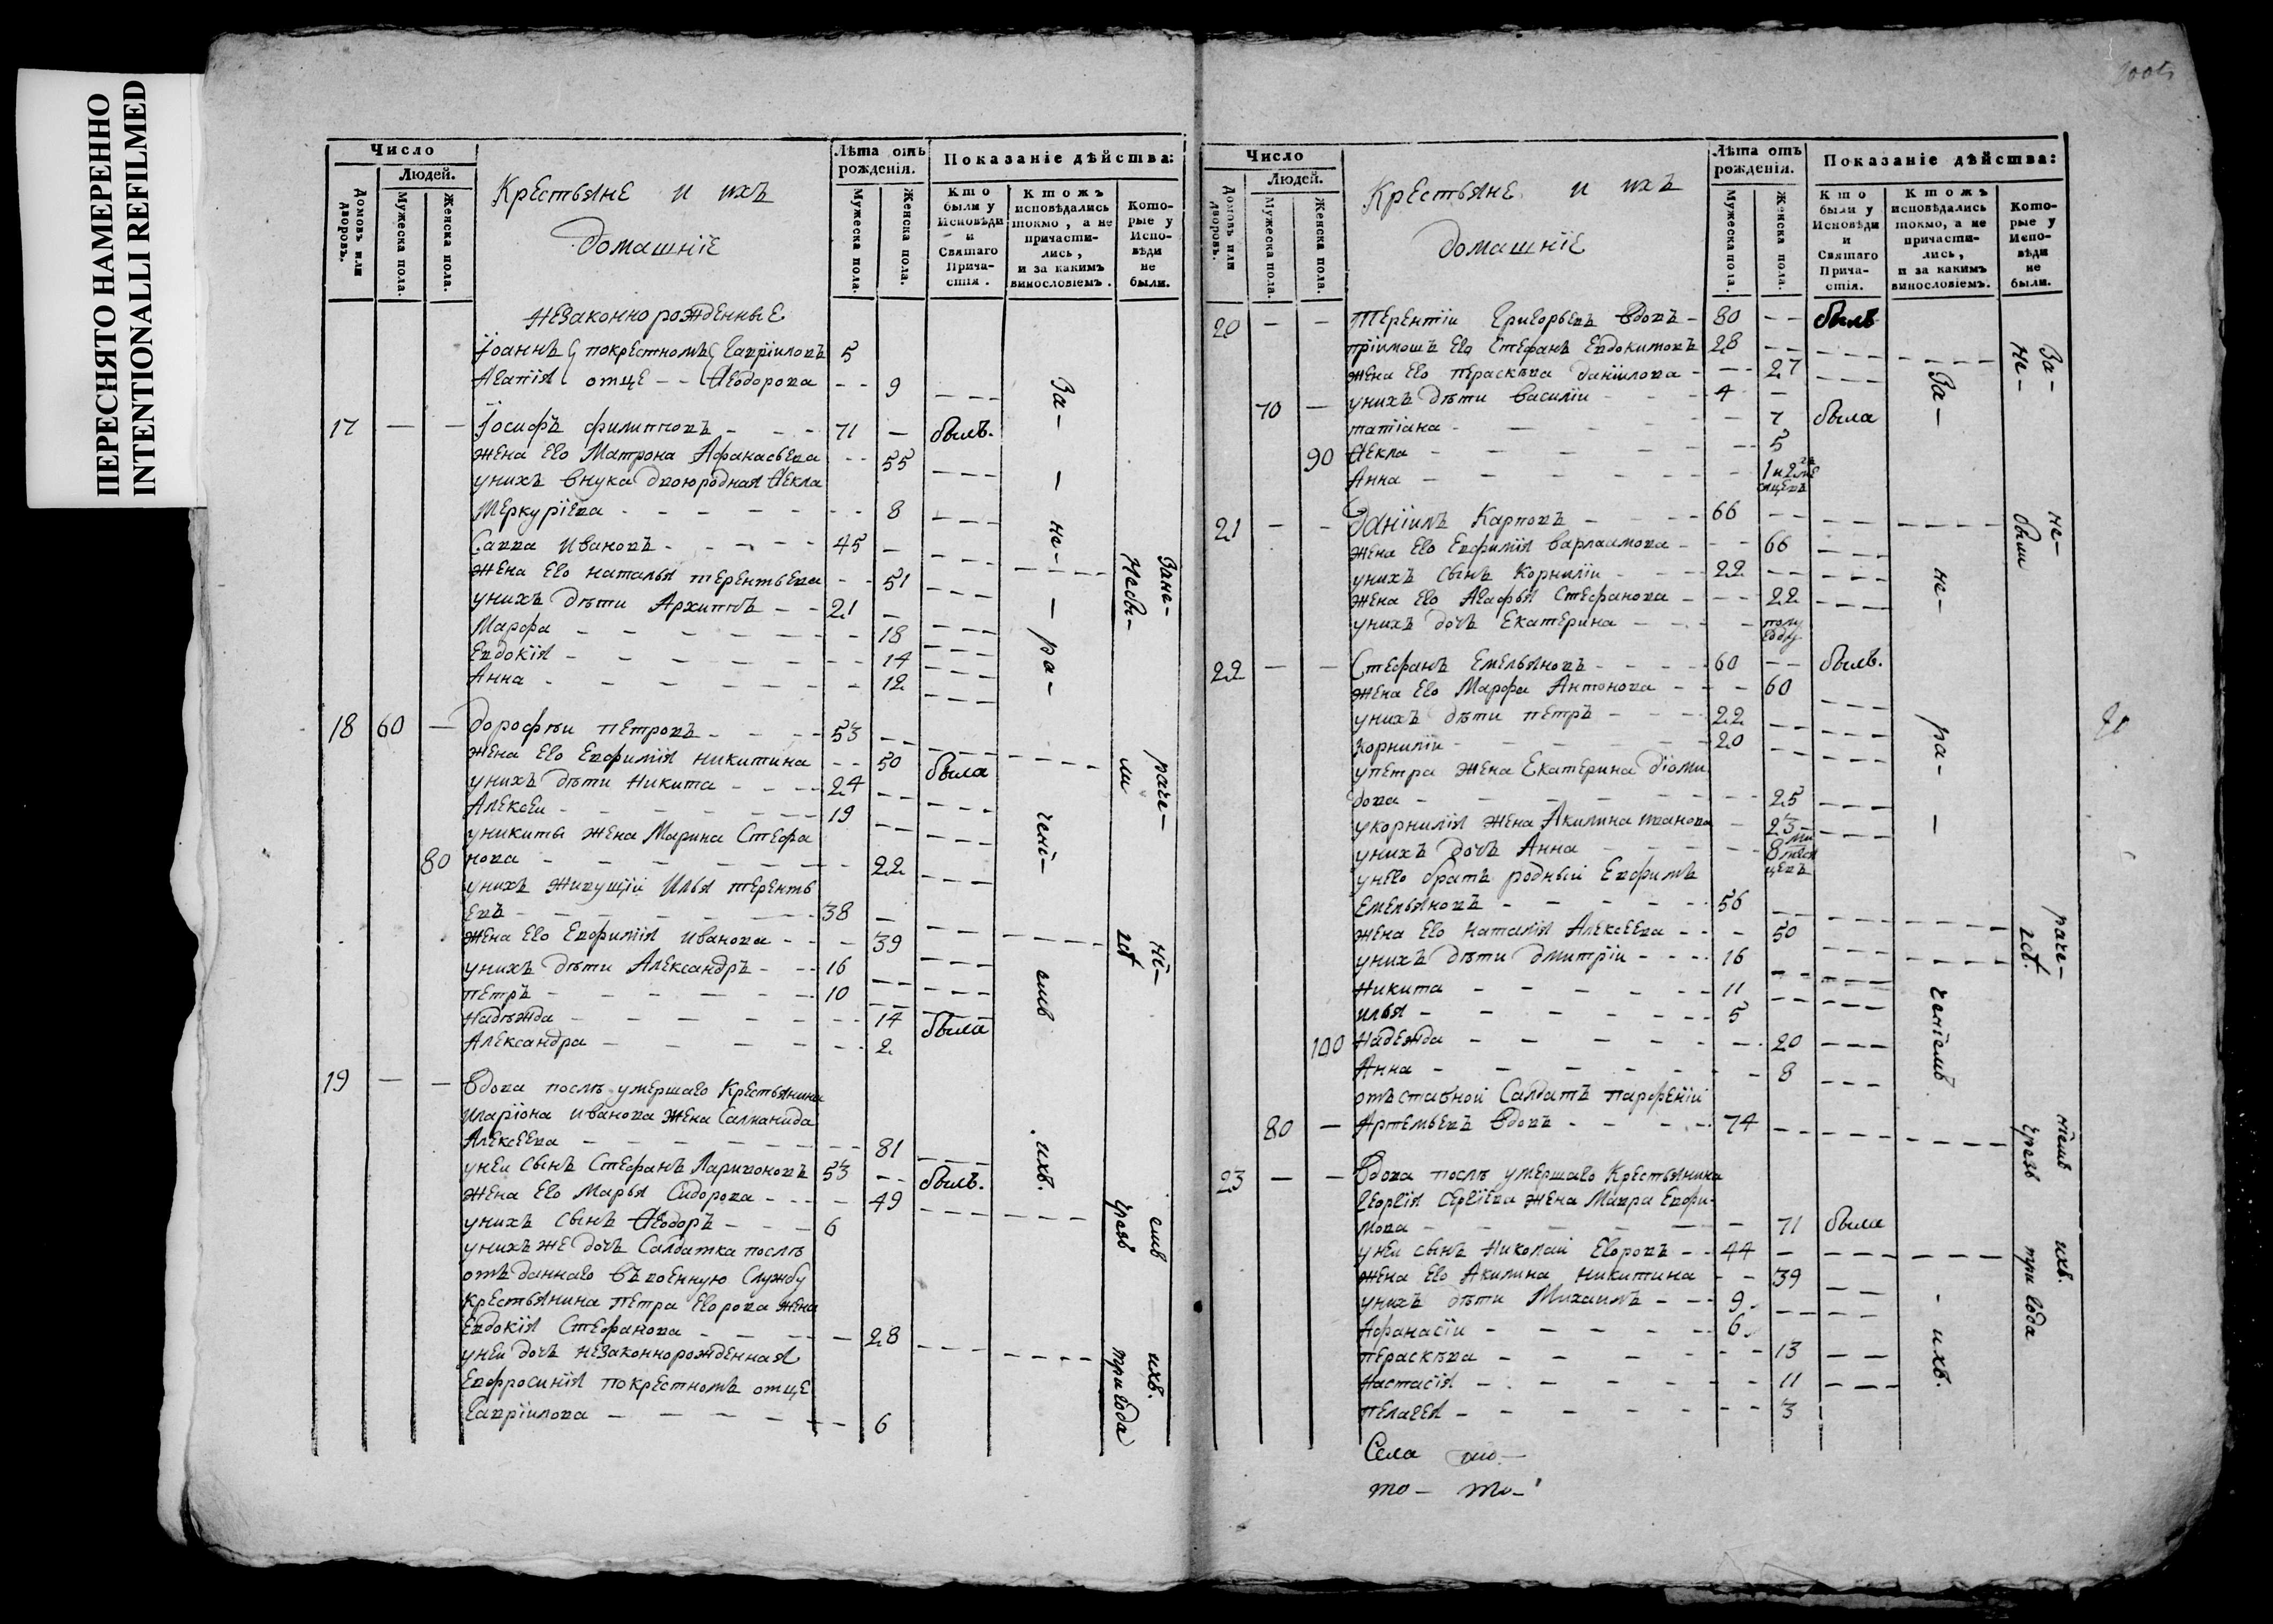 ПЕРЕСНЯТО НАМЕРЕННО
INTENTIONALLI REFILMED
Число
Людей.
Домовъ или дворовъ.
Мужеска пола.
Женска пола.
Крестьяне и ихъ
домашніе
Лѣта отъ рожденія.
Мужеска пола.
Женска пола.
Показаніе дѣйства:
Кто были у Исповѣди и Святаго Причастія.
Ктожъ исповѣдались токмо, а не причастились, и за какимъ винословіемъ.
Которые у Исповѣди не были.
незаконнорожденные
Іоаннъ покрестномъ Гавріиловъ 5
Агапія отце - - Ѳеодорова - - 9
17 — — Іосифъ филипповъ - - - 71 — былъ.
жена его Матрона Афанасьева - - 55
унихъ внука двоюродная Ѳекла
Меркуріева - - - - - - 8
Савва Ивановъ - - - - - 45 —
жена его наталья терентьева - - 51
унихъ дѣти Архиппъ - - 21 —
Марфа - - - - - - - 18
Евдокія - - - - - - - 14
Анна - - - - - - - 12
18 60 — дорофѣи петровъ - - - - 53 - -
жена его Евфимія никитина - - 50 была
унихъ дѣти Никита - - - - 24 - -
Алексеи - - - - - - 19
уникиты жена Марина Стефа
80 нова - - - - - - - 22
унихъ живущіи Илья теренть
евъ - - - - - - - 38 —
жена его Евфимія иванова - - - 39
унихъ дѣти Александръ - - - 16
петръ - - - - - - 10
надѣжда - - - - - - - 14 была
Александра - - - - - - 2
19 — — Вдова послѣ умершаго Крестьянина
иларіона иванова жена Саломанида
Алексеева - - - - - - - 81
унеи сынъ Стефанъ Ларивоновъ 53 - - былъ.
жена его Марья Сидорова - - - - 49
унихъ сынъ Ѳеодоръ - - - 6
унихъ же дочь Салдатка послѣ
отъ даннаго въ военную Службу
крестьянина петра Егорова жена
Евдокія Стефанова - - - - - 28
унеи дочь незаконнорожденная
Евфросинія покрестномъ отце
Гавріилова - - - - - - 6
За - не - ра - чені - емъ ихъ.
Зане - раче - ні - емъ ихъ.
Небы - ли 2 чрезъ три года
Число
Людей.
Домовъ или дворовъ.
Мужеска пола.
Женска пола.
Крестьяне и ихъ
домашніе
Лѣта отъ рожденія.
Мужеска пола.
Женска пола.
Показаніе дѣйства:
Кто были у Исповѣди и Святаго Причастія.
Ктожъ исповѣдались токмо, а не причастились, и за какимъ винословіемъ.
Которые у Исповѣди не были.
20 — — терентіи Григорьевъ вдовъ - 80 - - былъ
пріимошъ его Стефанъ Евдокимовъ 28 - -
жена его пераскѣва даніилова - - - 27
70 — унихъ дѣти василіи - - - 4 —
татіана - - - - - 7 была
90 Ѳекла - - - - - - 5
Анна - - - - - -
21 - - Даніилъ Карповъ - - - - 66 - -
жена его Евфимія варлаамова - - - 66
унихъ сынъ Корниліи - - - 22 - -
жена его Агафья Стефанова - - - 22
унихъ дочь Екатерина - - - - полу году
22 — — Стефанъ Емельяновъ - - - - 60 - - былъ.
жена его Марфа Антонова - - - 60
унихъ дѣти петръ - - - 22 - -
корниліи - - - - - - 20 - -
упетра жена Екатерина діоми
дова - - - - - - - 25
укорнилія жена Акилина иванова - 23
унихъ дочь Анна - - - - 8 ми месяцевъ
унего братъ родный Евфимъ
Емельяновъ - - - - - 56 - -
жена его наталія Алексеева - - - 50
унихъ дѣти дмитріи - - - - 16
никита - - - - - - 11
илья - - - - - - 5
100 надежда - - - - - - 20
Анна - - - - - - - 8
отъ ставной Салдатъ парфеніи
80 — Артемьевъ вдовъ - - - - - 74 - -
23 — — Вдова послѣ умершаго Крестьянина
Георгія Сергіева жена Мавра Евфи-
мова - - - - - - - 71 была
унеи сынъ николай Егоровъ - - 44 —
жена его Акилина никитина - - 39
унихъ дѣти Михаилъ - - - 9
Афанасіи - - - - - - 6
пераскѣва - - - - - - - 13
Настасія - - - - - - - 11
пелагея - - - - - - - 3
Села
то - то -
За - не - ра - ченіемъ - ихъ.
За - не - раче - ніемъ ихъ.
не - были 2 чрезъ три года